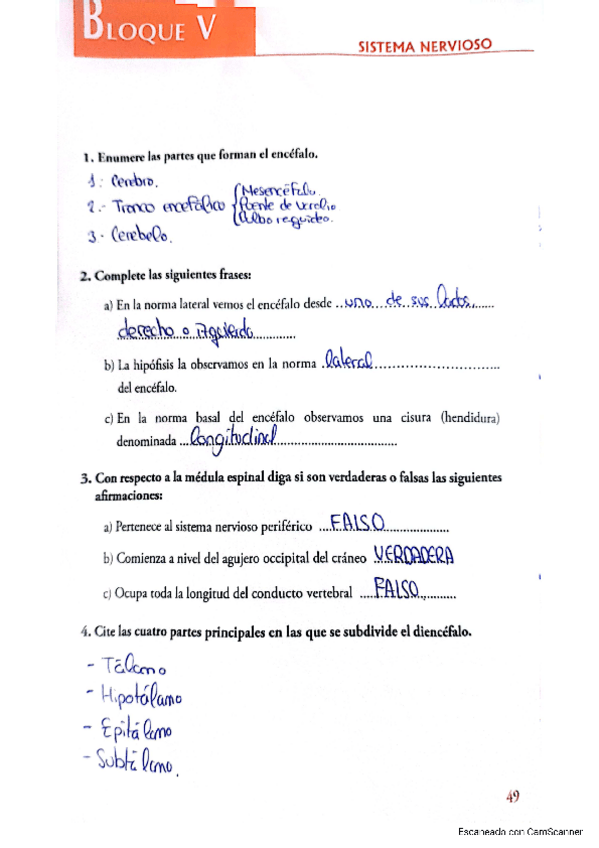 BLOQUE V
SISTEMA NERVIOSO
1. Enumere las partes que forman el encéfalo.
1.- Cerebro.
2.- Tronco encefálico { Mesencéfalo.
Puente de Varolio
Bulbo raquídeo.
3.- Cerebelo.
2. Complete las siguientes frases:
a) En la norma lateral vemos el encéfalo desde ..uno de sus lados.......
derecho o izquierdo............
b) La hipófisis la observamos en la norma .lateral..............................
del encéfalo.
c) En la norma basal del encéfalo observamos una cisura (hendidura)
denominada ...longitudinal..............................
3. Con respecto a la médula espinal diga si son verdaderas o falsas las siguientes
afirmaciones:
a) Pertenece al sistema nervioso periférico ....FALSO..................
b) Comienza a nivel del agujero occipital del cráneo VERDADERA
c) Ocupa toda la longitud del conducto vertebral ....FALSO..........
4. Cite las cuatro partes principales en las que se subdivide el diencéfalo.
- Tálamo
- Hipotálamo
- Epitálamo
- Subtálamo.
49
Escaneado con CamScanner